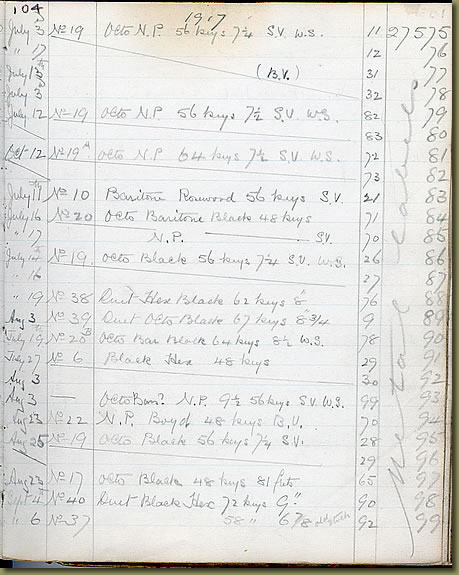 104
1917
July 3 No 19 Octo N.P. 56 keys 7¼ S.V. W.S. 11 27575
" 17 12 76
July 13 (B.V.) 31 77
July 3 32 78
July 12 No 19 Octo N.P. 56 keys 7½ S.V. W.S. 82 79
83 80
Oct 12 No 19 Octo N.P. 64 keys 7½ S.V. W.S. 72 81
73 82
July 11 No 10 Baritone Rosewood 56 keys S.V. 21 83
July 16 No 20 Octo Baritone Black 48 keys 71 84
" 17 N.P. S.V. 70 85
July 14 No 19 Octo Black 56 keys 7¼ S.V. W.S. 26 86
" 16 27 87
" 19 No 38 Duet Hex Black 62 keys 8 76 88
Aug 3 No 39 Duet Octo Black 67 keys 8 3/4 9 89
July 19 No 20 B Octo Bar Black 64 keys 8½ W.S. 78 90
July 27 No 6 Black Hex 48 keys 29 91
Aug 3 30 92
Aug 3 — Octo N.P. 9½ 56 keys S.V. W.S. 99 93
Aug 23 No 22 N.P. Boyd 48 keys B.V. 70 94
Aug 25 No 19 Octo Black 56 keys 7¼ S.V. 28 95
29 96
Aug 23 No 17 Octo Black 48 keys 65 97
Sept 4 No 40 Duet Black Hex 72 keys 9" 90 98
" 6 No 37 58 " 6 7/8 92 99
Metal